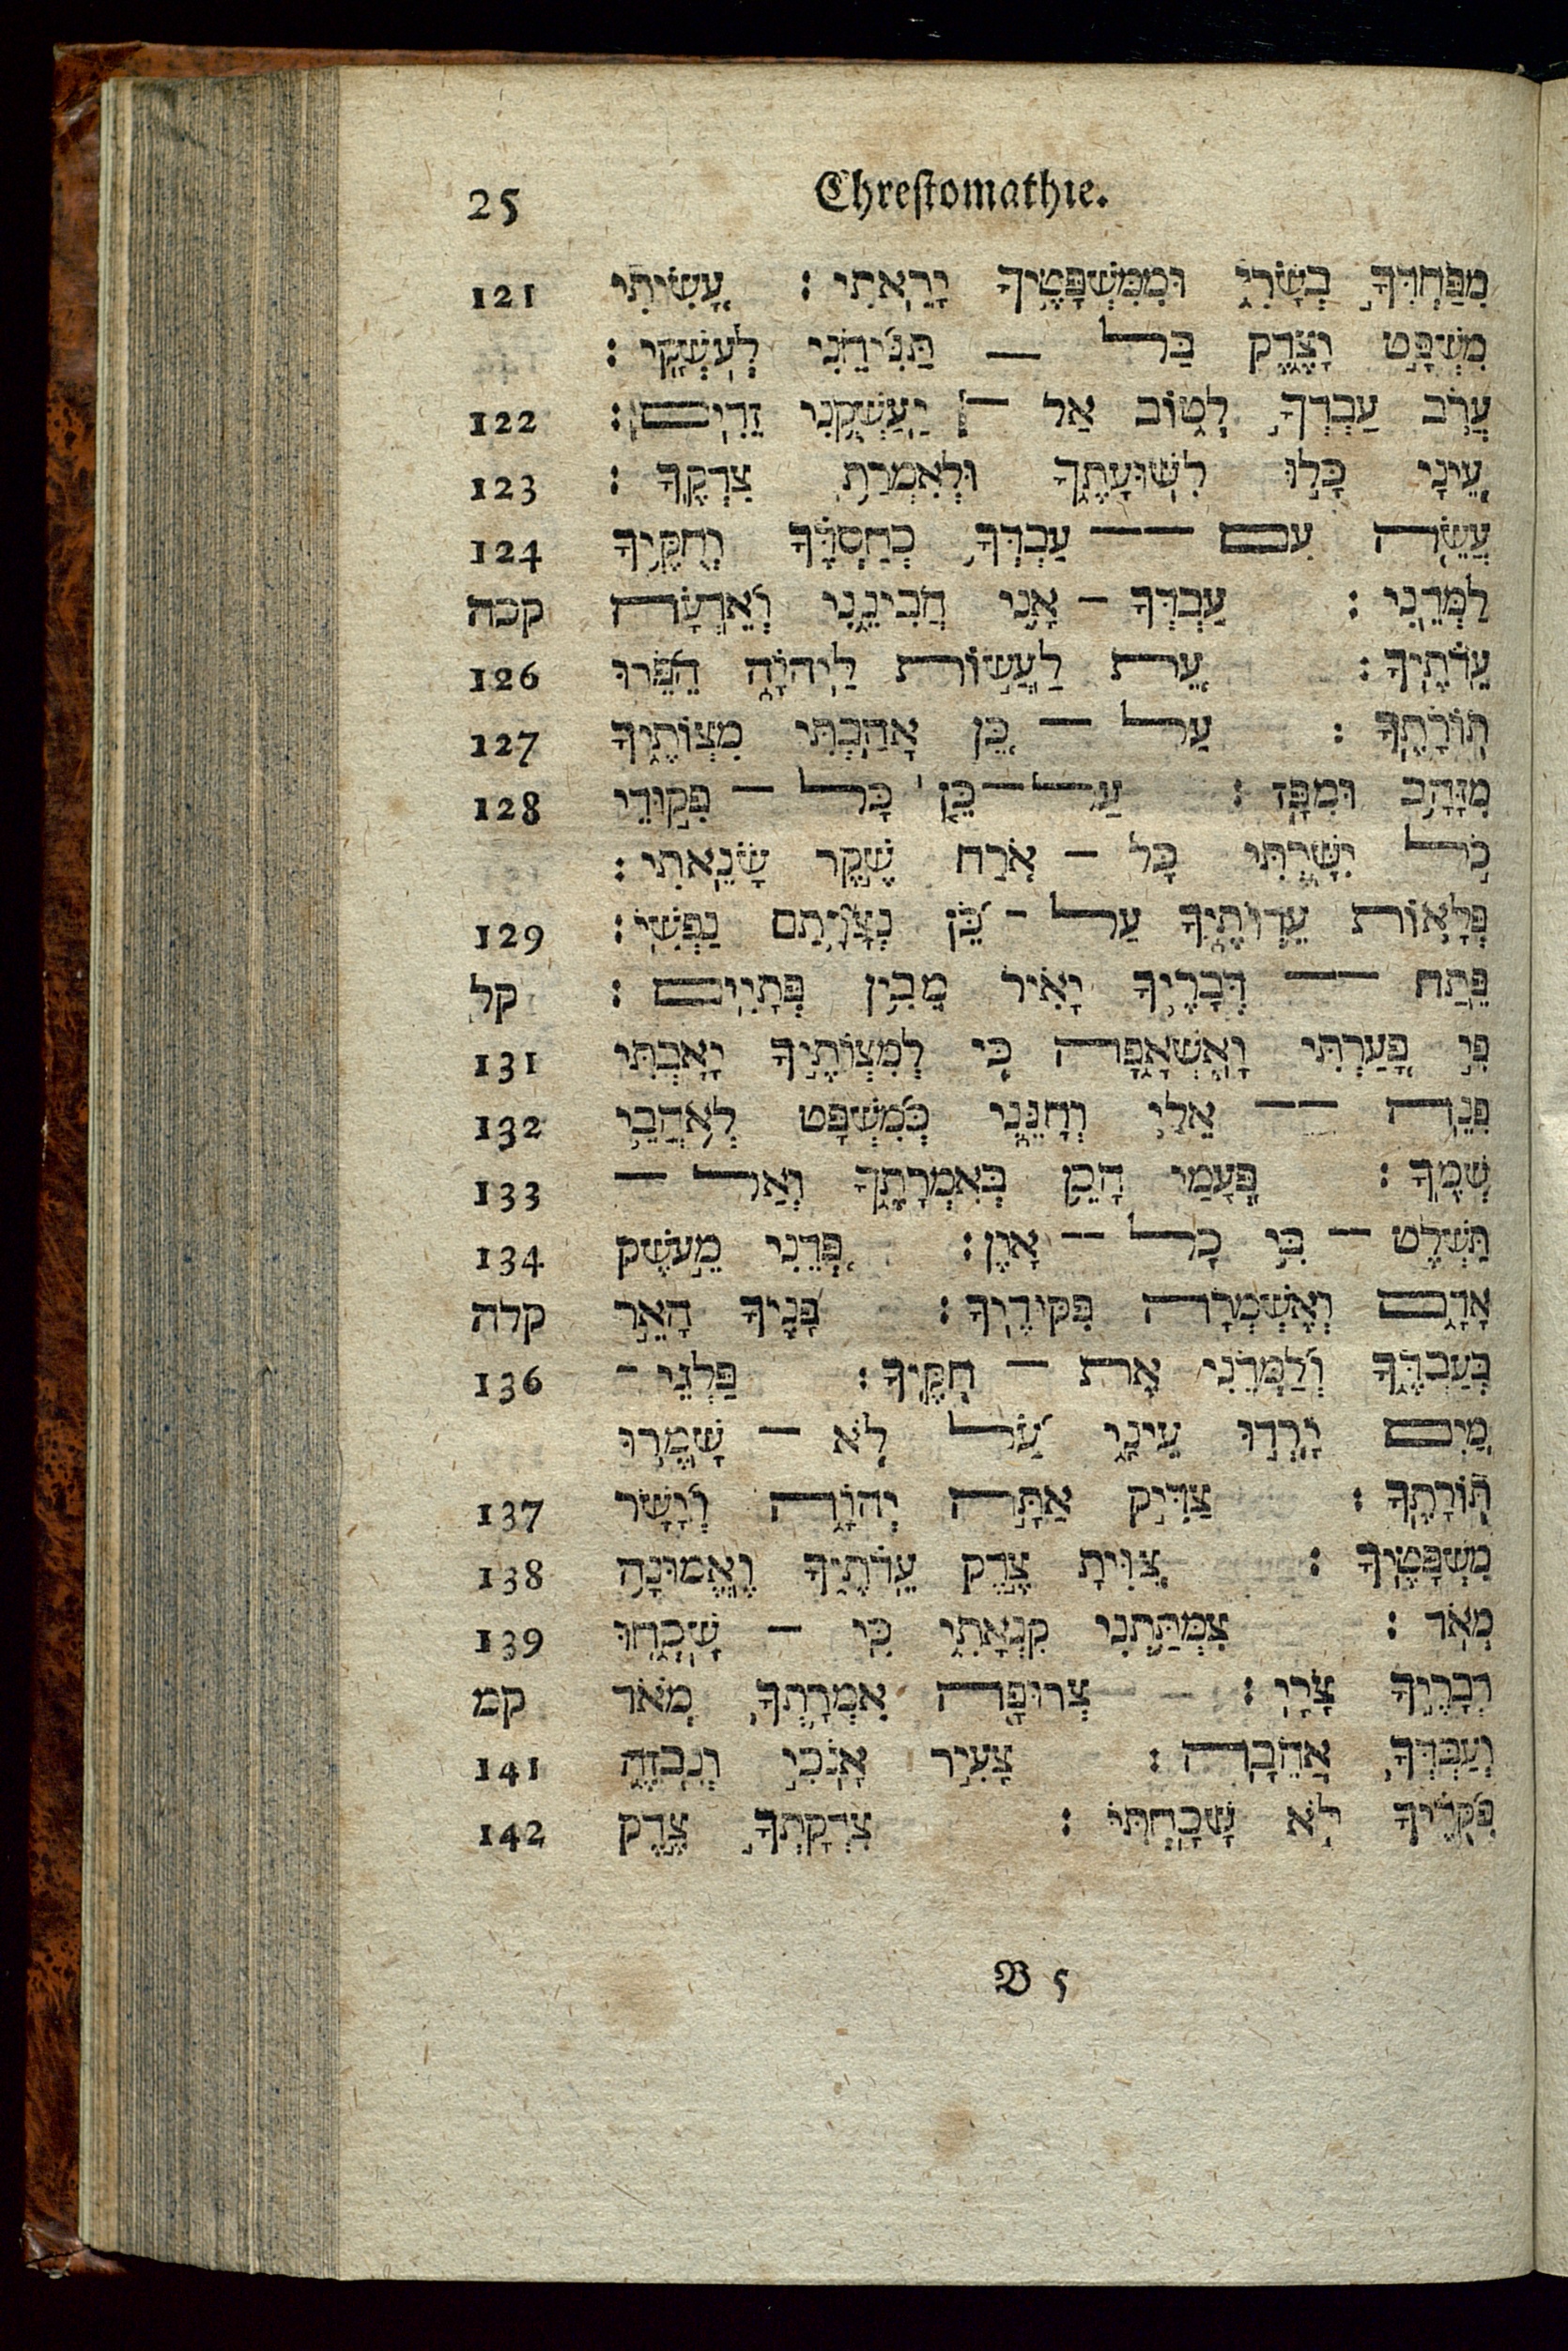 25 Chrestomathie.
מִפַּחְדְּךָ בְשָׂרִי וּמִמִּשְׁפָּטֶיךָ יָרֵאתִי : עָשִׂיתִי 121
מִשְׁפָּט וָצֶדֶק בַּל — תַּנִּיחֵנִי לְעֹשְׁקָי :
עֲרֹב עַבְדְּךָ לְטוֹב אַל — יַעַשְׁקֻנִי זֵדִים : 122
עֵינַי כָּלוּ לִישׁוּעָתֶךָ וּלְאִמְרַת צִדְקֶךָ : 123
עֲשֵׂה עִם —— עַבְדְּךָ כְחַסְדֶּךָ וְחֻקֶּיךָ 124
לַמְּדֵנִי : עַבְדְּךָ – אָנִי הֲבִינֵנִי וְאֵדְעָה קכה
עֵדֹתֶיךָ : עֵת לַעֲשׂוֹת לַיהוָה הֵפֵרוּ 126
תּוֹרָתֶךָ : עַל — כֵּן אָהַבְתִּי מִצְוֹתֶיךָ 127
מִזָּהָב וּמִפָּז : עַל — כֵּן כָּל — פִּקּוּדֵי 128
כֹל יִשָּׁרְתִּי כָּל – אֹרַח שֶׁקֶר שָׂנֵאתִי :
פְּלָאוֹת עֵדְוֹתֶיךָ עַל – כֵּן נְצָרָתַם נַפְשִׁי : 129
פֵּתַח —— דְּבָרֶיךָ יָאִיר מֵבִין פְּתָיִים : קל
פִּי פָעַרְתִּי וָאֶשְׁאָפָה כִּי לְמִצְוֹתֶיךָ יָאָבְתִּי 131
פְּנֵה —— אֵלַי וְחָנֵּנִי כְּמִשְׁפָּט לְאֹהֲבֵי 132
שְׁמֶךָ : פְּעָמַי הָכֵן בְּאִמְרָתֶךָ וְאַל — 133
תַּשְׁלֶט — בִּי כָל — אָוֶן : פְּדֵנִי מֵעֹשֶׁק 134
אָדָם וְאֶשְׁמְרָה פִּקּוּדֶיךָ : פָּנֶיךָ הָאֵר קלה
בְּעַבְדֶּךָ וְלַמְּדֵנִי אֶת — חֻקֶּיךָ : פַּלְגֵי – 136
מַיִם יָרְדוּ עֵינָי עַל לֹא — שָׁמְרוּ
תוֹרָתֶךָ : צַדִּיק אַתָּה יְהוָה וְיָשָׁר 137
מִשְׁפָּטֶיךָ : צִוִּיתָ צֶדֶק עֵדֹתֶיךָ וֶאֱמוּנָה 138
מְאֹד : צִמְּתַתְנִי קִנְאָתִי כִּי — שָׁכְחוּ 139
דְבָרֶיךָ צָרָי : צְרוּפָה אִמְרָתְךָ מְאֹד קמ
וְעַבְדְּךָ אֲהֵבָהּ : צָעִיר אָנֹכִי וְנִבְזֶה 141
פִּקֻּדֶיךָ לֹא שָׁכָחְתִּי : צִדְקָתְךָ צֶדֶק 142
B 5